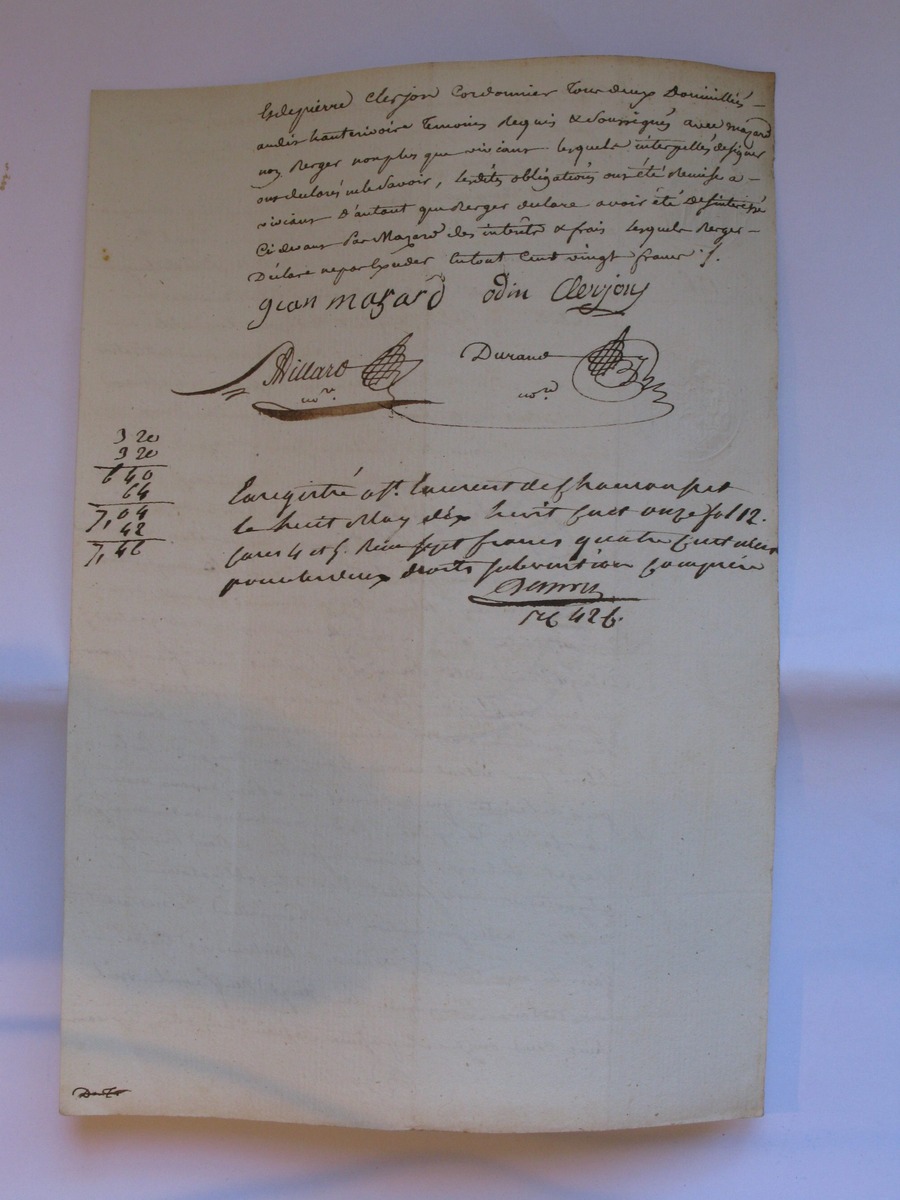 Et de pierre Clerjon Cordonnier tous deux Domiciliés
audit hauterivoire Temoins Requis & soussignés avec mazard
non Berger non plus que viviant lesquels interpellés de signer
ont declarés ne le savoir, lesdites obligations ont été Remise a
viviant D'autant que Berger declare avoir été desinteressé
Ci devant Par Mazard des intérêts & frais lesquels Berger
Déclare ne pas Exceder en tout Cent vingt francs ./.
jean mazard odin Clerjon
Durand
nore
nore
3 20
3 20
6 40
64
7,04
42
7,46
Enregistré a St. Laurent de Chamousset
le huit May dix huit cent onze fol 12.
cases 4 et 5. Reçu sept francs quatre centimes
pour les deux droits subvention comprise
42 c.